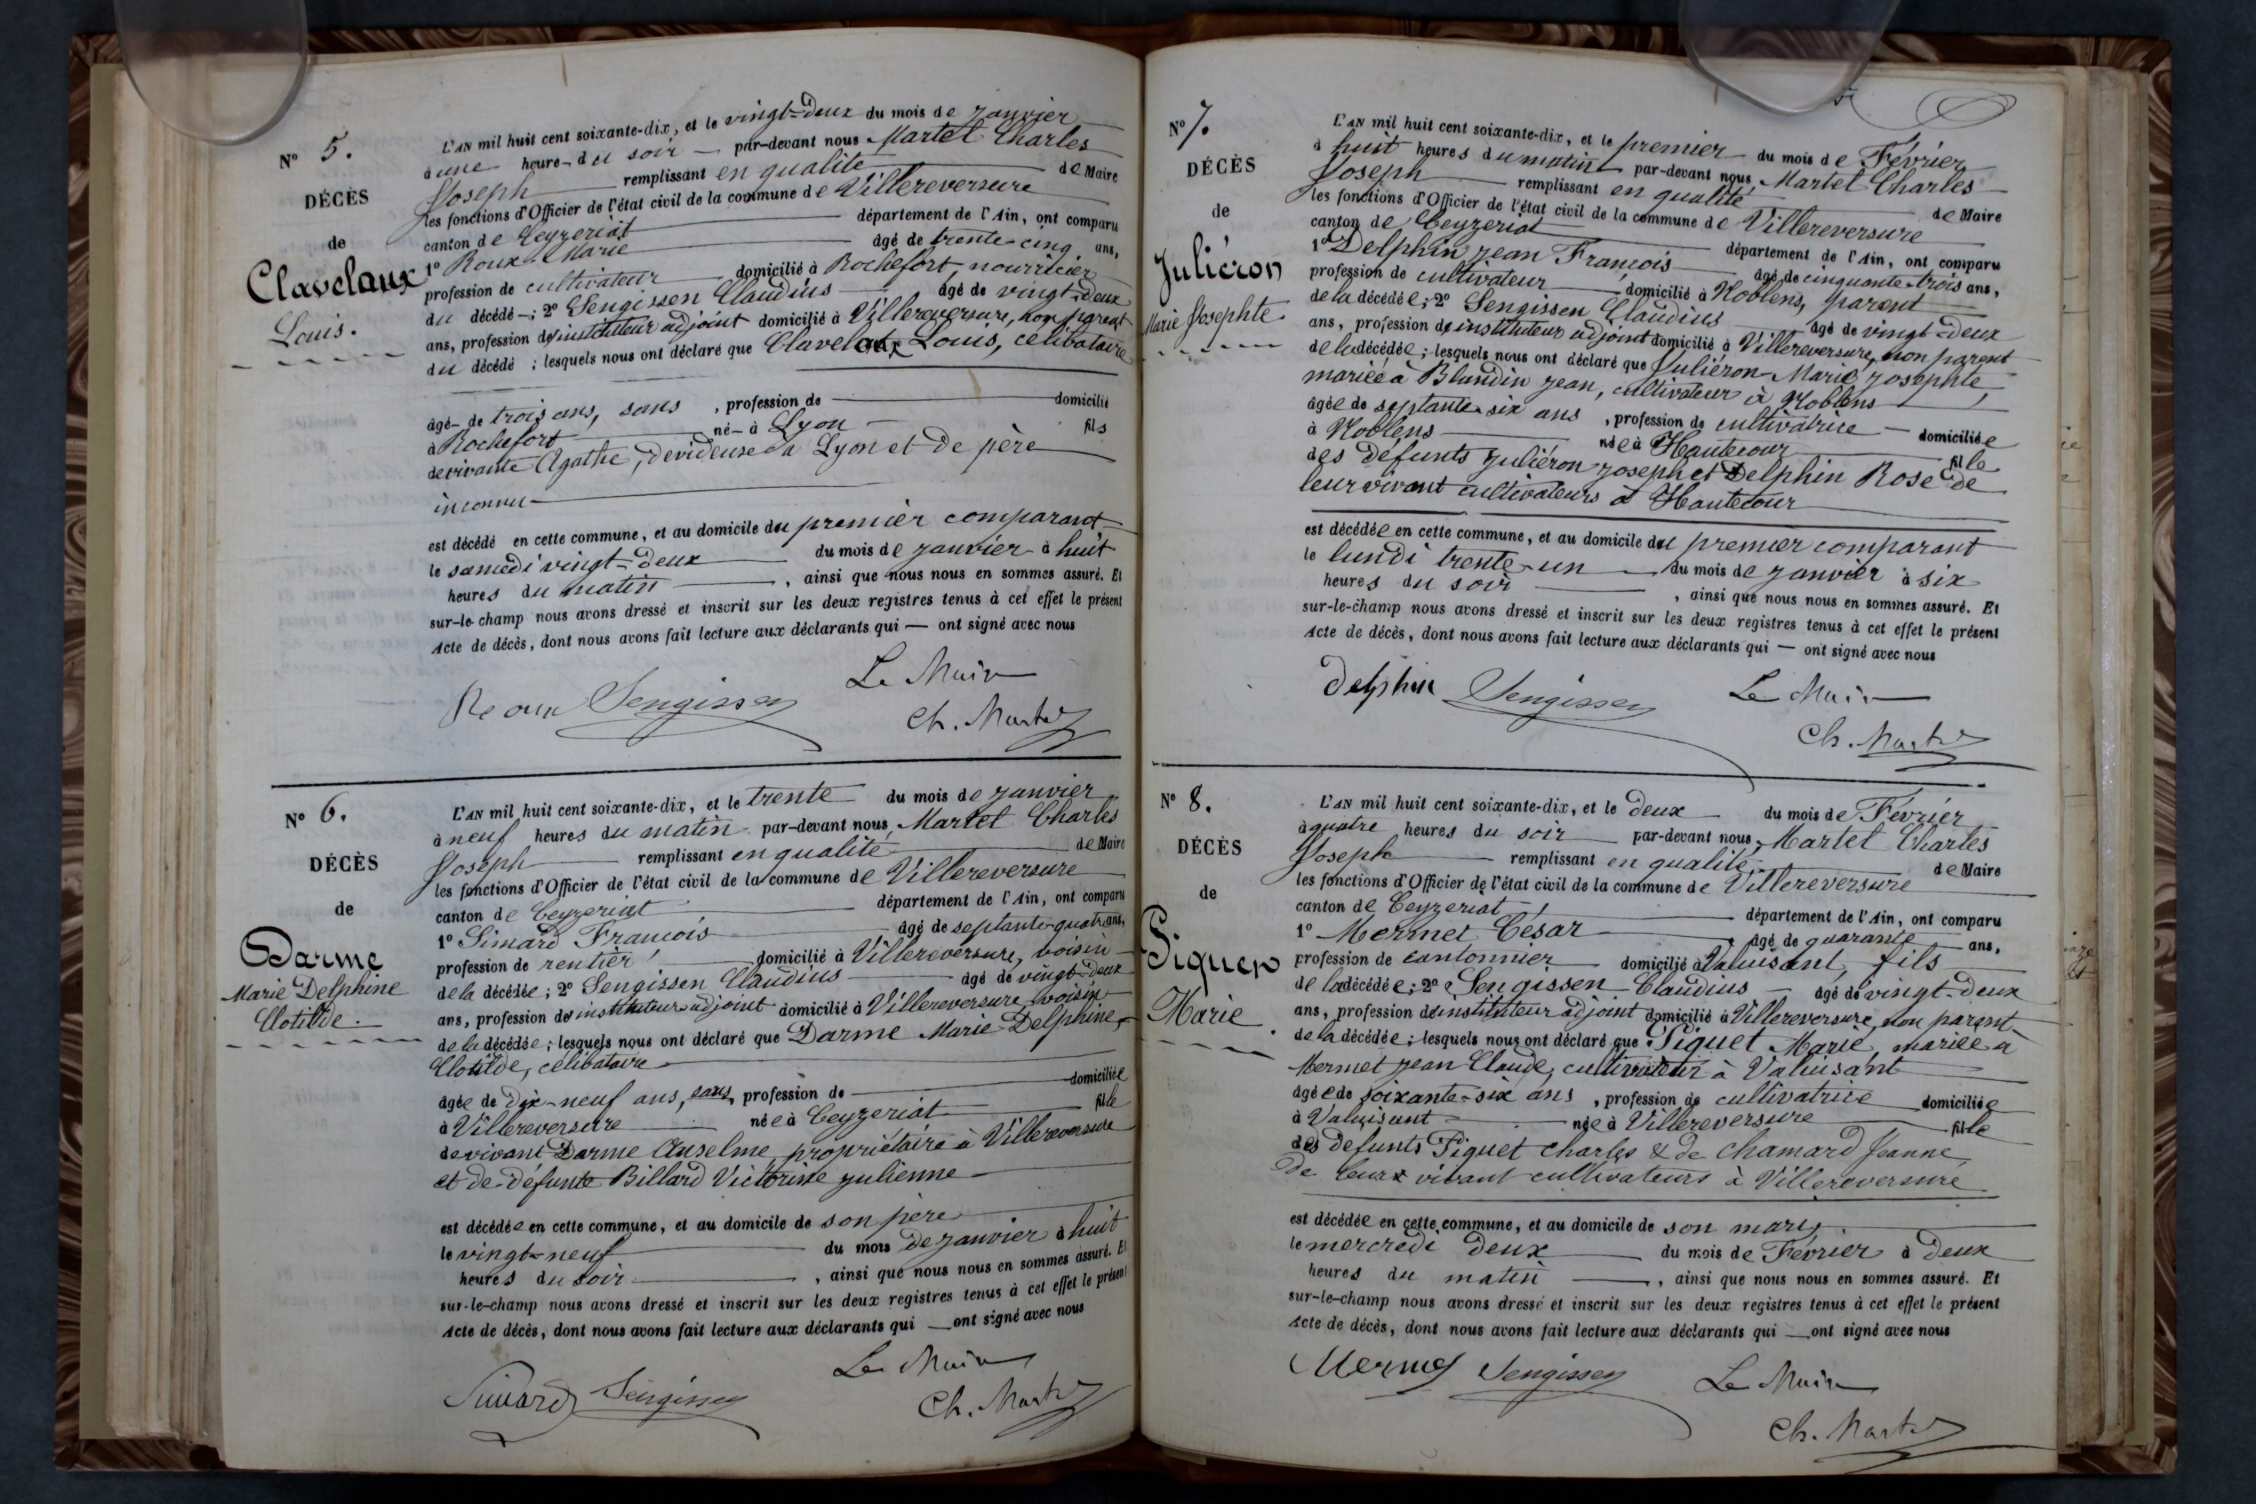 N° 5.
DÉCÈS
de
Clavelaux
Louis.
L'AN mil huit cent soixante-dix, et le vingt-deux du mois de janvier
à une heure du soir par-devant nous Martel Charles
Joseph remplissant en qualité de Maire
les fonctions d'Officier de l'état civil de la commune de Villereversure
canton de Ceyzeriat département de l'Ain, ont comparu
1° Roux Marie âgé de trente-cinq ans,
profession de cultivateur domicilié à Rochefort, nourricier
du décédé ; 2° Sengissen Claudius âgé de vingt-deux
ans, profession d'instituteur adjoint domicilié à Villereversure, non parent
du décédé ; lesquels nous ont déclaré que Clavelaux Louis, célibataire
âgé de trois ans, sans , profession de domicilié
à Rochefort né à Lyon fils
de vivante Agathe, dévideuse à Lyon et de père
inconnu
est décédé en cette commune, et au domicile du premier comparant
le samedi vingt-deux du mois de janvier à huit
heures du matin , ainsi que nous nous en sommes assuré. Et
sur-le-champ nous avons dressé et inscrit sur les deux registres tenus à cet effet le présent
Acte de décès, dont nous avons fait lecture aux déclarants qui — ont signé avec nous
Le Maire
Roux Sengissen
Ch. Martel
N° 6.
DÉCÈS
de
Darme
Marie Delphine
Clotilde.
L'AN mil huit cent soixante-dix, et le trente du mois de janvier
à neuf heures du matin par-devant nous Martel Charles
Joseph remplissant en qualité de Maire
les fonctions d'Officier de l'état civil de la commune de Villereversure
canton de Ceyzeriat département de l'Ain, ont comparu
1° Simard François âgé de septante-quatre ans,
profession de rentier domicilié à Villereversure, voisin
de la décédée ; 2° Sengissen Claudius âgé de vingt-deux
ans, profession d'instituteur adjoint domicilié à Villereversure, voisin
de la décédée ; lesquels nous ont déclaré que Darme Marie Delphine
Clotilde, célibataire
âgée de dix-neuf ans, sans, profession de domiciliée
à Villereversure née à Ceyzeriat fille
de vivant Darme Anselme, propriétaire à Villereversure
et de défunte Billard Victorine Julienne
est décédée en cette commune, et au domicile de son père
le vingt-neuf du mois de janvier à huit
heures du soir , ainsi que nous nous en sommes assuré. Et
sur-le-champ nous avons dressé et inscrit sur les deux registres tenus à cet effet le présent
Acte de décès, dont nous avons fait lecture aux déclarants qui — ont signé avec nous
Le Maire
Simard Sengissen
Ch. Martel
N° 7.
DÉCÈS
de
Juliéron
Marie Josephte
L'AN mil huit cent soixante-dix, et le premier du mois de Février
à huit heures du matin par-devant nous Martel Charles
Joseph remplissant en qualité de Maire
les fonctions d'Officier de l'état civil de la commune de Villereversure
canton de Ceyzeriat département de l'Ain, ont comparu
1° Delphin Jean François âgé de cinquante-trois ans,
profession de cultivateur domicilié à Noblens, parent
de la décédée ; 2° Sengissen Claudius âgé de vingt-deux
ans, profession d'instituteur adjoint domicilié à Villereversure, non parent
de la décédée ; lesquels nous ont déclaré que Juliéron Marie Josephte,
mariée à Blandin Jean, cultivateur à Noblens
âgée de septante-six ans , profession de cultivatrice domiciliée
à Noblens née à Hautecour fille
des défunts Juliéron Joseph et Delphin Rose de
leur vivant cultivateurs à Hautecour
est décédée en cette commune, et au domicile du premier comparant
le lundi trente-un du mois de janvier à six
heures du soir , ainsi que nous nous en sommes assuré. Et
sur-le-champ nous avons dressé et inscrit sur les deux registres tenus à cet effet le présent
Acte de décès, dont nous avons fait lecture aux déclarants qui — ont signé avec nous
Delphin Sengissen Le Maire
Ch. Martel
N° 8.
DÉCÈS
de
Piquet
Marie.
L'AN mil huit cent soixante-dix, et le deux du mois de Février
à quatre heures du soir par-devant nous, Martel Charles
Joseph remplissant en qualité de Maire
les fonctions d'Officier de l'état civil de la commune de Villereversure
canton de Ceyzeriat département de l'Ain, ont comparu
1° Mermet César âgé de quarante ans,
profession de cantonnier domicilié à Valuisant, fils
de la décédée ; 2° Sengissen Claudius âgé de vingt-deux
ans, profession d'instituteur adjoint domicilié à Villereversure, non parent
de la décédée ; lesquels nous ont déclaré que Piquet Marie, mariée à
Mermet Jean Claude, cultivateur à Valuisant
âgée de soixante-six ans , profession de cultivatrice domiciliée
à Valuisant née à Villereversure fille
des défunts Piquet Charles & de Chamard Jeanne
de leur vivant cultivateurs à Villereversure
est décédée en cette commune, et au domicile de son mari
le mercredi deux du mois de Février à deux
heures du matin , ainsi que nous nous en sommes assuré. Et
sur-le-champ nous avons dressé et inscrit sur les deux registres tenus à cet effet le présent
Acte de décès, dont nous avons fait lecture aux déclarants qui — ont signé avec nous
Mermet Sengissen Le Maire
Ch. Martel